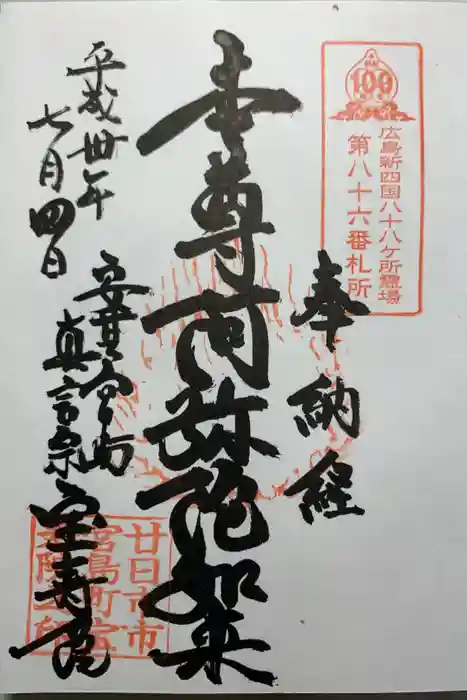 100
広島新四国八十八ヶ所霊場
第八十六番札所
奉納経
本尊阿弥陀如来
平成卅年
七月四日
安芸宮島
真言宗
宝寿院
廿日市市
宮島町宝